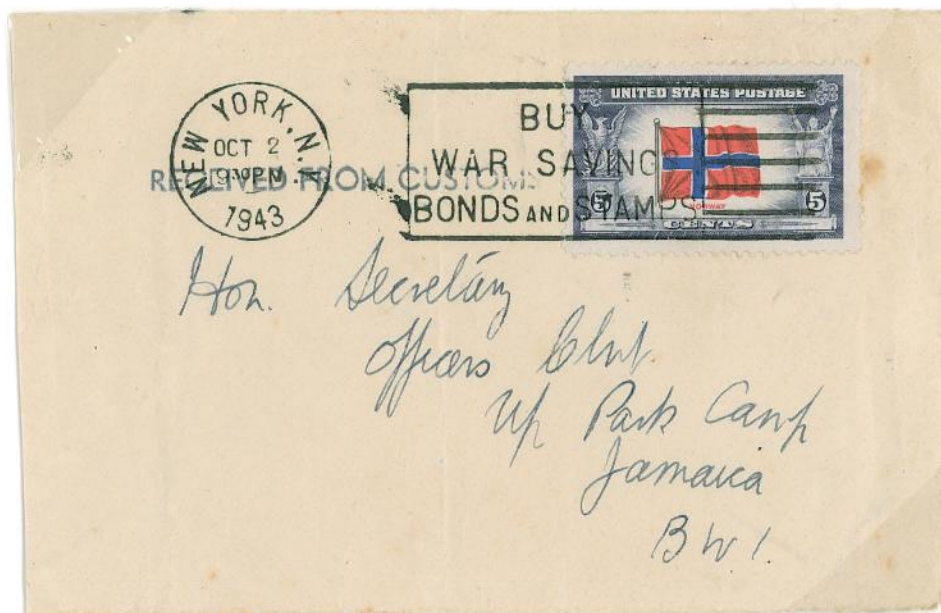 NEW YORK, N.Y.
OCT 2
930PM
1943
RECEIVED FROM CUSTOMS
BUY
WAR SAVINGS
BONDS AND STAMPS
UNITED STATES POSTAGE
5 NORWAY 5
CENTS
Hon. Secretary
Officers Club.
Up Park Camp
Jamaica
B W I